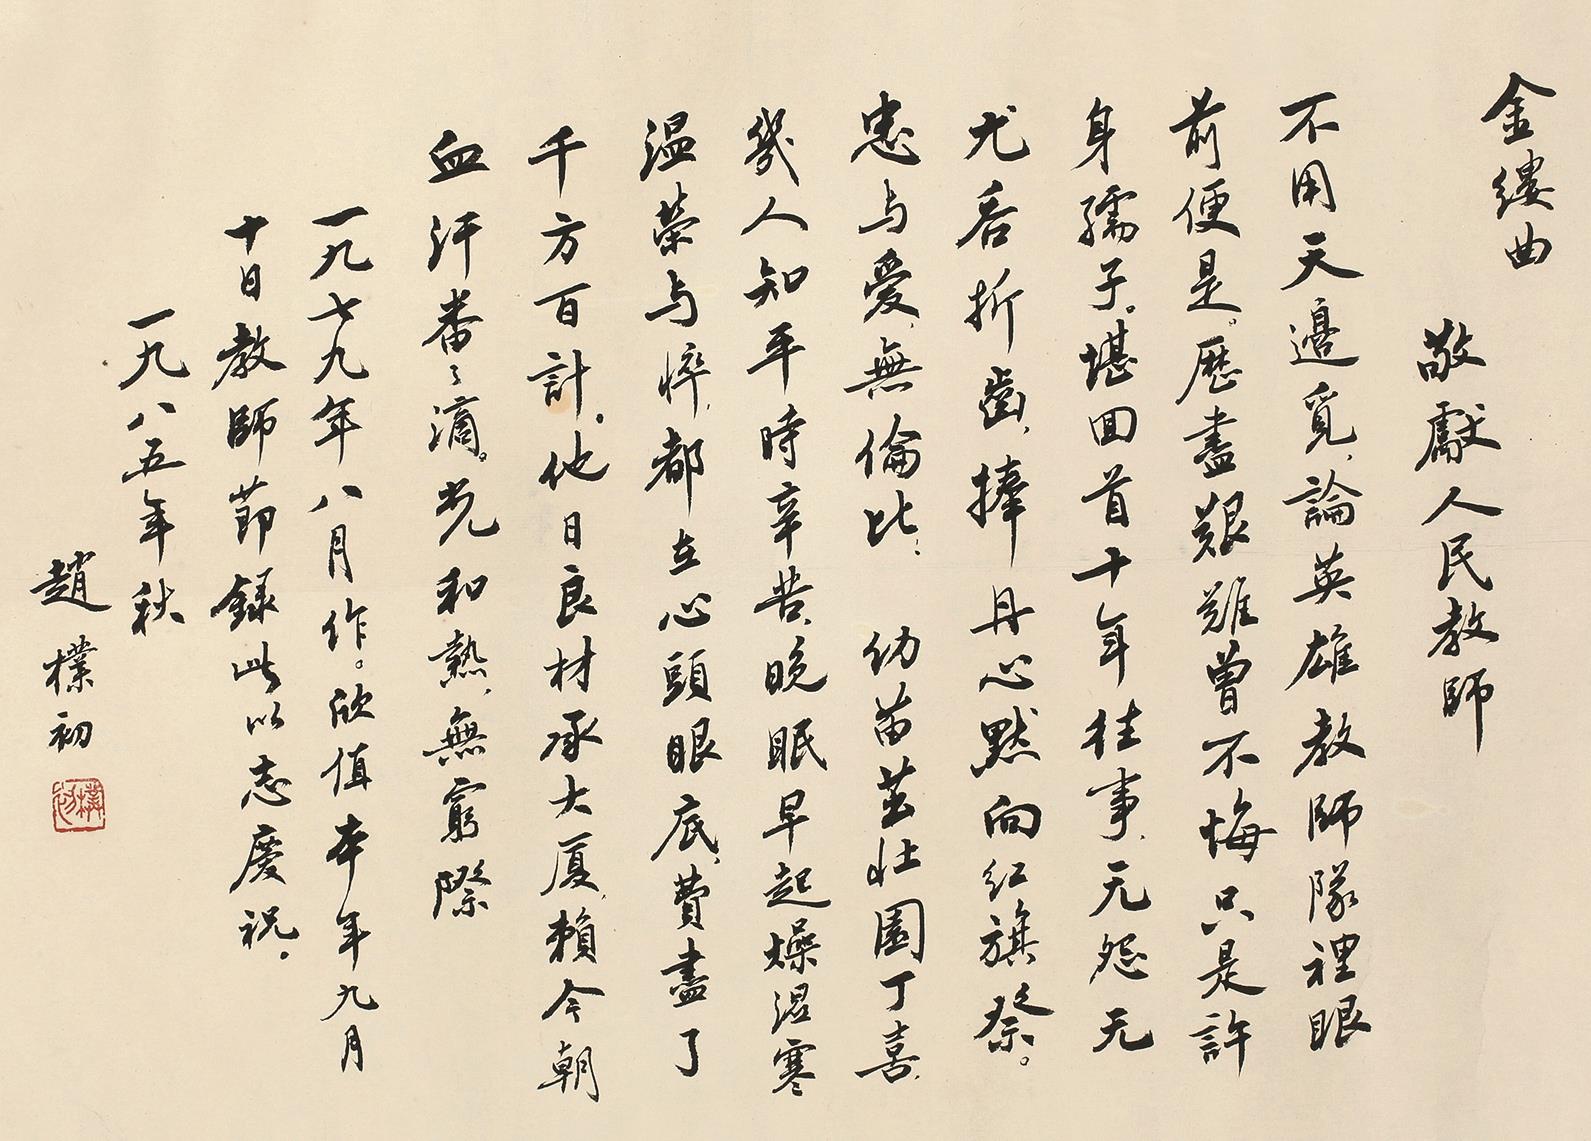 金縷曲
敬獻人民教師
不用天邊覓，論英雄教師隊裡眼
前便是。歷盡艱難曾不悔只是許
身孺子。堪回首十年往事，无怨无
尤吞折齒，捧丹心默向红旗祭。
忠与愛，無倫比。幼苗茁壯園丁喜，
幾人知平時辛苦晚眠早起燥湿寒
温榮与悴，都在心頭眼底，費盡了
千方百計。他日良材承大厦，賴今朝
血汗番〻滴。光和熱，無窮際
一九七九年八月作。欣值本年九月
十日教師節録此以志慶祝。
一九八五年秋
趙樸初
樸初